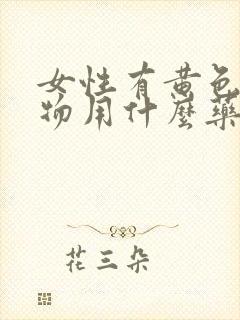 女性有黄色
物用什麼藥
花三朵